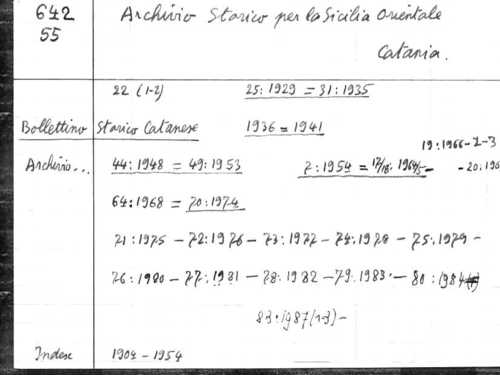 642 Archivio Storico per la Sicilia Orientale
55 Catania.
22 (1-2) 25:1929 = 31:1935
Bollettino Storico Catanese 1936 = 1941
19:1966-2-3
Archivio... 44:1948 = 49:1953 7:1954 = 17/18:1964/5- -20:196
64:1968 = 70:1974
71:1975 - 72:1976 - 73:1977 - 74:1978 - 75:1979 -
76:1980 - 77:1981 - 78:1982 - 79:1983 - 80:1984
83:1987(1-3) -
Indese 1904 - 1954